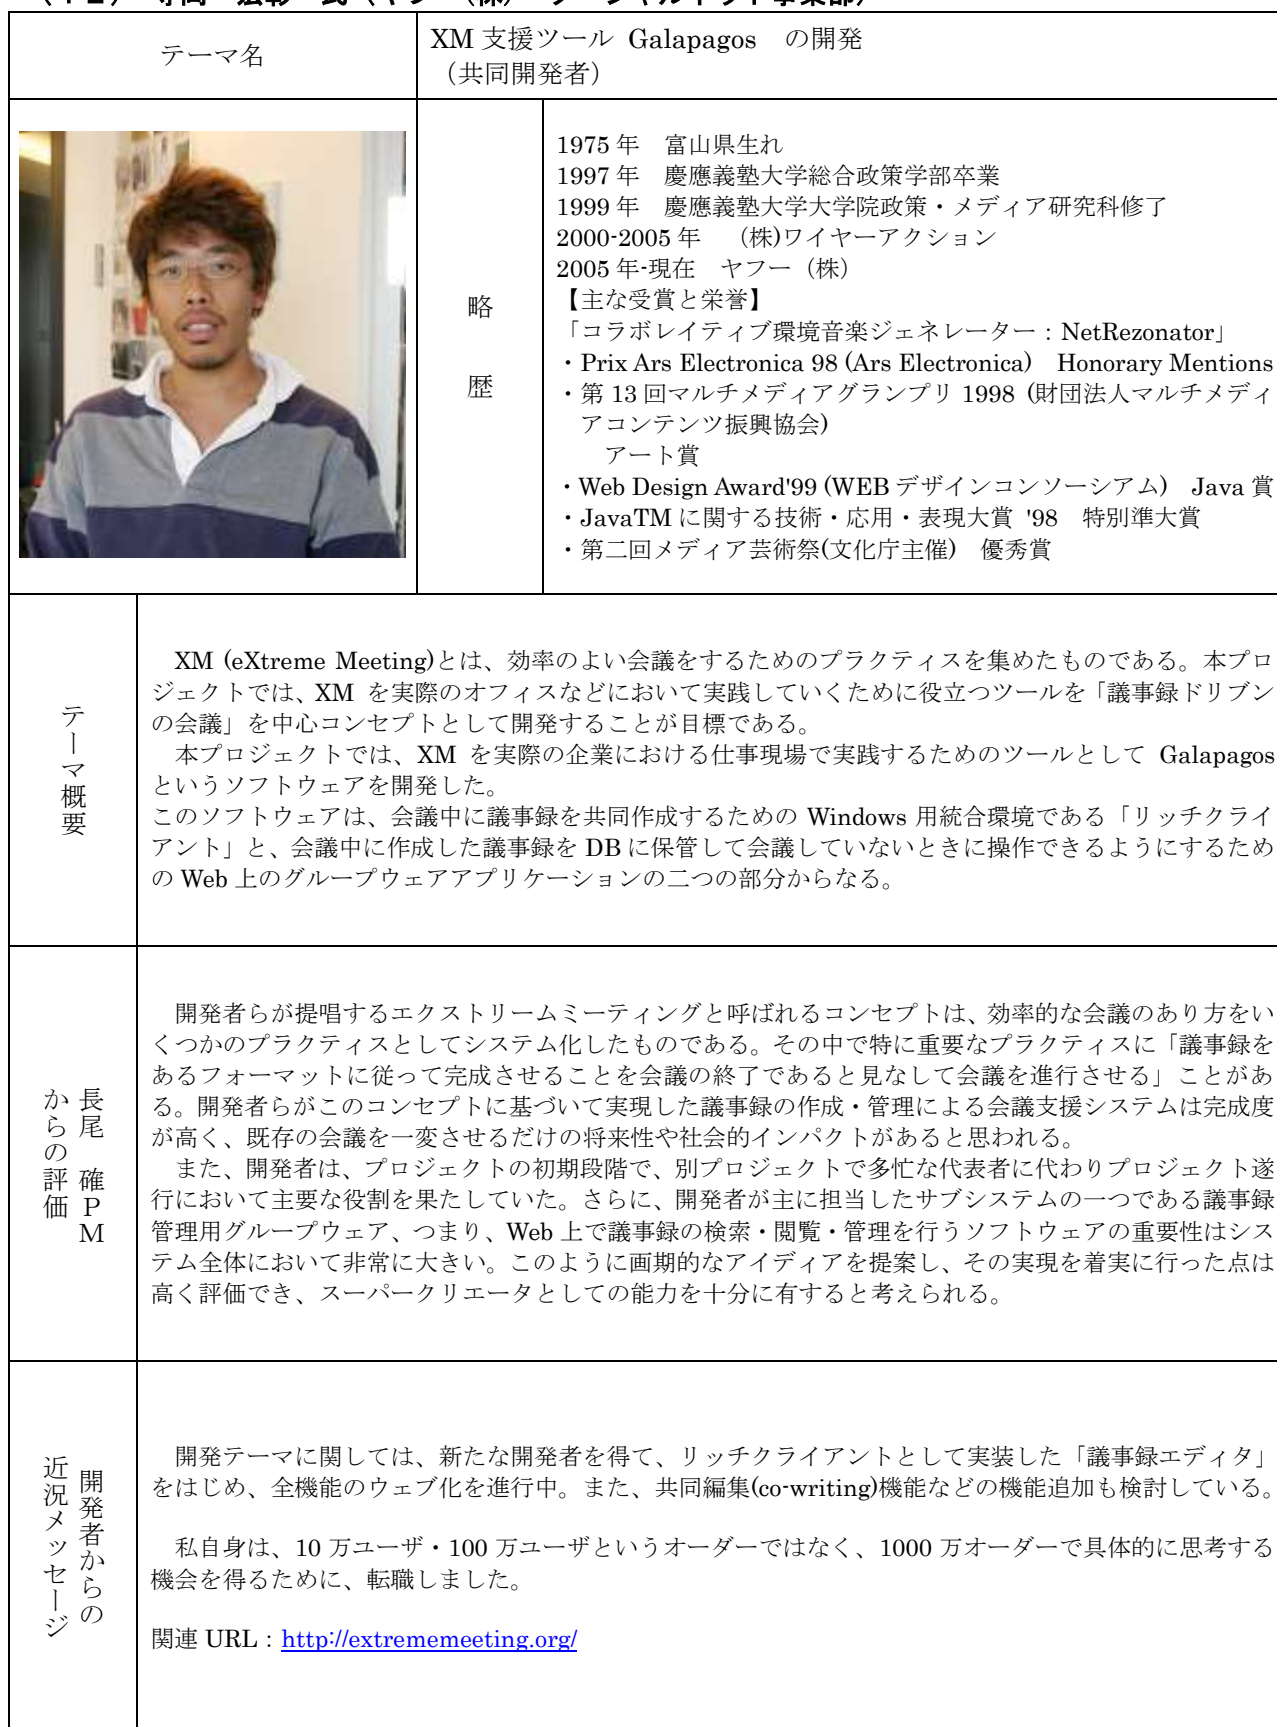 テーマ名
XM 支援ツール Galapagos　の開発
（共同開発者）
略歴
1975 年　富山県生れ
1997 年　慶應義塾大学総合政策学部卒業
1999 年　慶應義塾大学大学院政策・メディア研究科修了
2000-2005 年　（株)ワイヤーアクション
2005 年-現在　ヤフー（株）
【主な受賞と栄誉】
「コラボレイティブ環境音楽ジェネレーター：NetRezonator」
・Prix Ars Electronica 98 (Ars Electronica)　Honorary Mentions
・第 13 回マルチメディアグランプリ 1998 (財団法人マルチメディ
アコンテンツ振興協会)
アート賞
・Web Design Award'99 (WEB デザインコンソーシアム)　Java 賞
・JavaTM に関する技術・応用・表現大賞 '98　特別準大賞
・第二回メディア芸術祭(文化庁主催)　優秀賞
テーマ概要
XM (eXtreme Meeting)とは、効率のよい会議をするためのプラクティスを集めたものである。本プロ
ジェクトでは、XM を実際のオフィスなどにおいて実践していくために役立つツールを「議事録ドリブン
の会議」を中心コンセプトとして開発することが目標である。
本プロジェクトでは、XM を実際の企業における仕事現場で実践するためのツールとして Galapagos
というソフトウェアを開発した。
このソフトウェアは、会議中に議事録を共同作成するための Windows 用統合環境である「リッチクライ
アント」と、会議中に作成した議事録を DB に保管して会議していないときに操作できるようにするため
の Web 上のグループウェアアプリケーションの二つの部分からなる。
長尾　確ＰＭ
からの評価
開発者らが提唱するエクストリームミーティングと呼ばれるコンセプトは、効率的な会議のあり方をい
くつかのプラクティスとしてシステム化したものである。その中で特に重要なプラクティスに「議事録を
あるフォーマットに従って完成させることを会議の終了であると見なして会議を進行させる」ことがあ
る。開発者らがこのコンセプトに基づいて実現した議事録の作成・管理による会議支援システムは完成度
が高く、既存の会議を一変させるだけの将来性や社会的インパクトがあると思われる。
また、開発者は、プロジェクトの初期段階で、別プロジェクトで多忙な代表者に代わりプロジェクト遂
行において主要な役割を果たしていた。さらに、開発者が主に担当したサブシステムの一つである議事録
管理用グループウェア、つまり、Web 上で議事録の検索・閲覧・管理を行うソフトウェアの重要性はシス
テム全体において非常に大きい。このように画期的なアイディアを提案し、その実現を着実に行った点は
高く評価でき、スーパークリエータとしての能力を十分に有すると考えられる。
開発者からの
近況メッセージ
開発テーマに関しては、新たな開発者を得て、リッチクライアントとして実装した「議事録エディタ」
をはじめ、全機能のウェブ化を進行中。また、共同編集(co-writing)機能などの機能追加も検討している。
私自身は、10 万ユーザ・100 万ユーザというオーダーではなく、1000 万オーダーで具体的に思考する
機会を得るために、転職しました。
関連 URL：http://extrememeeting.org/